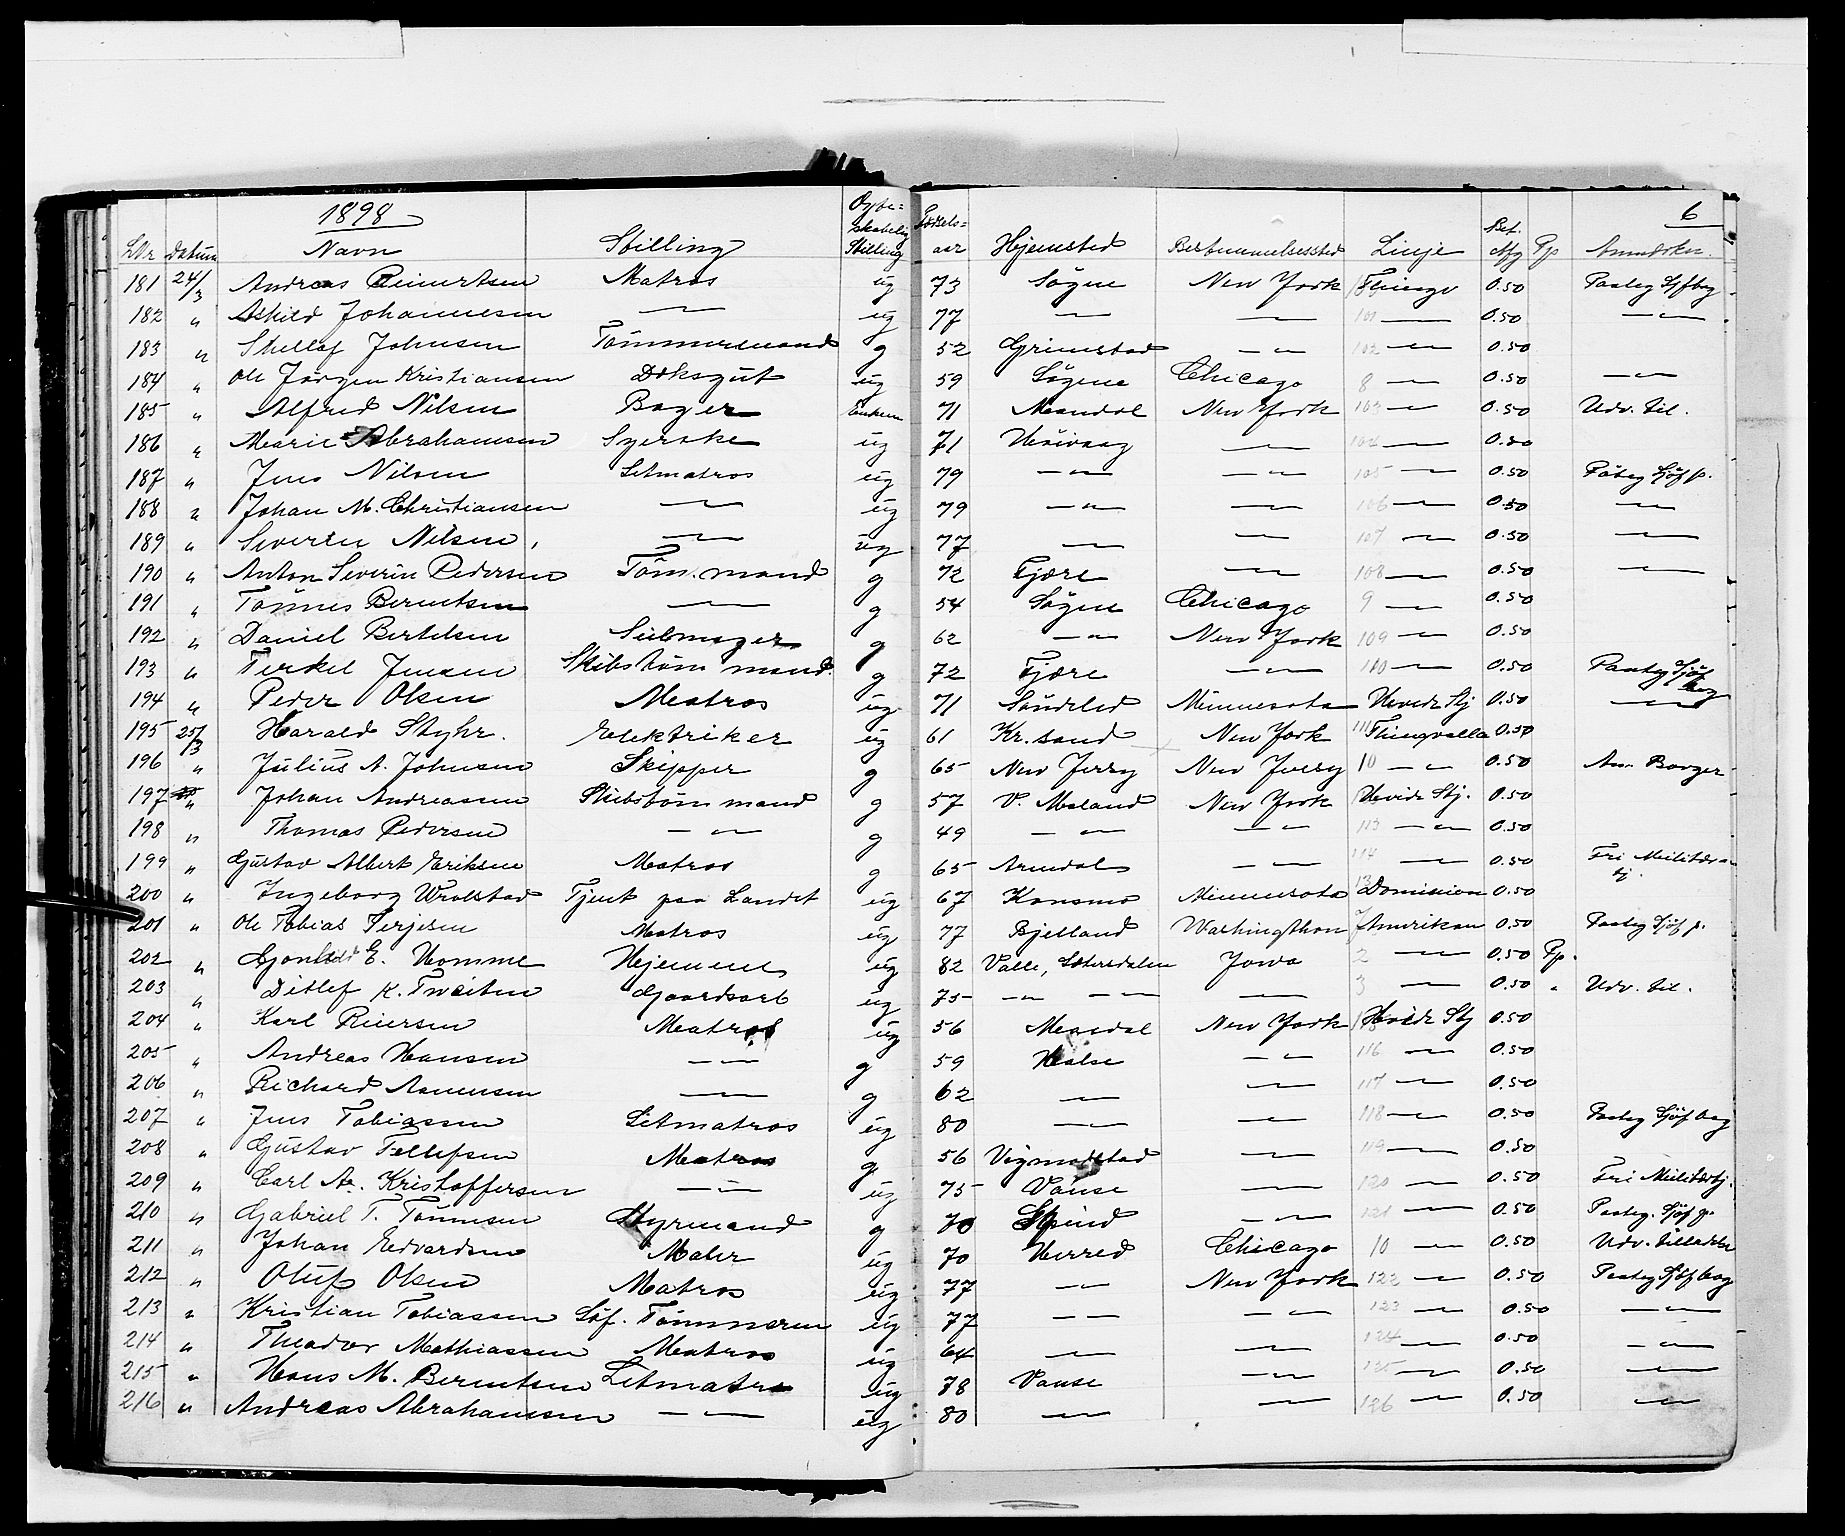 1898 6
LNr Datum Navn Stilling Ægte- skabelig Stilling Fødsels- aar Hjemsted Bestemmelsessted Linje Bet. Afg Pp Anmærkn.
181 24/3 Andreas Reinertsen Matros ug 73 Søgne New York Thingv 0.50 Paateg Sjfbog
182 " Askild Johannesen —"— ug 77 —"— —"— 101 —"— 0.50 —"—
183 " Johnsen Tømmermand g 52 Grimstad —"— 102 —"— 0.50
184 " Ole Jørgen Kristiansen Doksgut ug 59 Søgne Chicago 8 —"— 0.50 —"—
185 " Alfred Nilsen Bager Enkem 71 Mandal New York 103 —"— 0.50 Udv. til.
186 " Marie Abrahamsen Syerske ug 71 Høivaag —"— 104 —"— 0.50
187 " Jens Nilsen Letmatros ug 79 —"— —"— 105 —"— 0.50 Påteg Sjöf p.
188 " Johan M. Christiansen —"— ug 79 —"— —"— 106 —"— 0.50 —"—
189 " Severin Nilsen, —"— ug 77 —"— —"— 107 —"— 0.50 —"—
190 " Anton Severin Pedersen Töm. mand g 72 Fjære —"— 108 —"— 0.50 —"—
191 " Tönnes Berntsen —"— g 54 Søgne Chicago 9 —"— 0.50
192 " Daniel Bertelsen Seilmager g 62 —"— New York 109 —"— 0.50
193 " Terkel Jensen Skibstöm mand. g 72 Fjære —"— 110 —"— 0.50 Paateg Sjöf bog
194 " Peder Olsen Matros ug 71 Söndeled Minnesota Hvide Stj 0.50 —"—
195 25/3 Harald Styhr. Elektriker ug 61 Kr.sand New York 111 Thingvalla 0.50
196 " Julius A. Johnsen Skipper g 65 New Jersy New Jersy 10 —"— 0.50 Am Borger
197 " Johan Andreassen Skibstöm mand g 57 V. Moland New York Hvide Stj. 0.50
198 " Thomas Pedersen —"— g 49 —"— —"— 113 —"— 0.50
199 " Gustav Albert Eriksen Matros g 65 Arendal —"— 114 —"— 0.50 Fri Militær tj.
200 " Ingeborg Wrolstad Tjent paa Landet ug 67 Konsmo Minnesota 13 Dominion 0.50
201 " Ole Tobias Terjesen Matros ug 77 Bjelland Washingthon 7 Amerikan 0.50 Paateg Sjöf p.
202 " E. Homme Hjemme ug 82 Valle, Sætersdalen Jowa 2 —"— 0.50 Pp.
203 " Ditlef K. Tveiten Gaardsarb ug 75 —"— —"— —"— 3 —"— 0.50 " Udv. til.
204 " Karl Reiersen Matros ug 56 Mandal New York 115 Hvide Stj 0.50
205 " Andreas Hansen —"— g 59 Halse —"— 116 —"— 0.50
206 " Richard Asmunsen —"— g 62 —"— —"— 117 —"— 0.50
207 " Jens Tobiassen Letmatros ug 80 —"— —"— 118 —"— 0.50 Paateg Sjöf bog
208 " Gustav Tellefsen Matros g 56 Vigmostad —"— 119 —"— 0.50
209 " Carl A. Kristoffersen —"— ug 75 Vanse —"— 120 —"— 0.50 Fri Militærtj.
210 " Gabriel T. Tönnesen Styrmand g 70 Spind —"— 121 —"— 0.50 Paateg. Sjöf p.
211 " Johan Edvardsen Maler ug 70 Herred Chicago 10 —"— 0.50 Udv. tilladelse
212 " Oluf Olsen Matros ug 77 —"— New York 122 —"— 0.50 Paateg Sjöf bog
213 " Kristian Tobiassen Söf. Tömmerm ug 77 —"— —"— 123 —"— 0.50 —"—
214 " Theodor Mathiassen Matros ug 64 —"— —"— 124 —"— 0.50 —"—
215 " Hans M. Berntsen Letmatros ug 78 Vanse —"— 125 —"— 0.50 —"—
216 " Andreas Abrahamssen —"— ug 80 —"— —"— 126 —"— 0.50 —"—